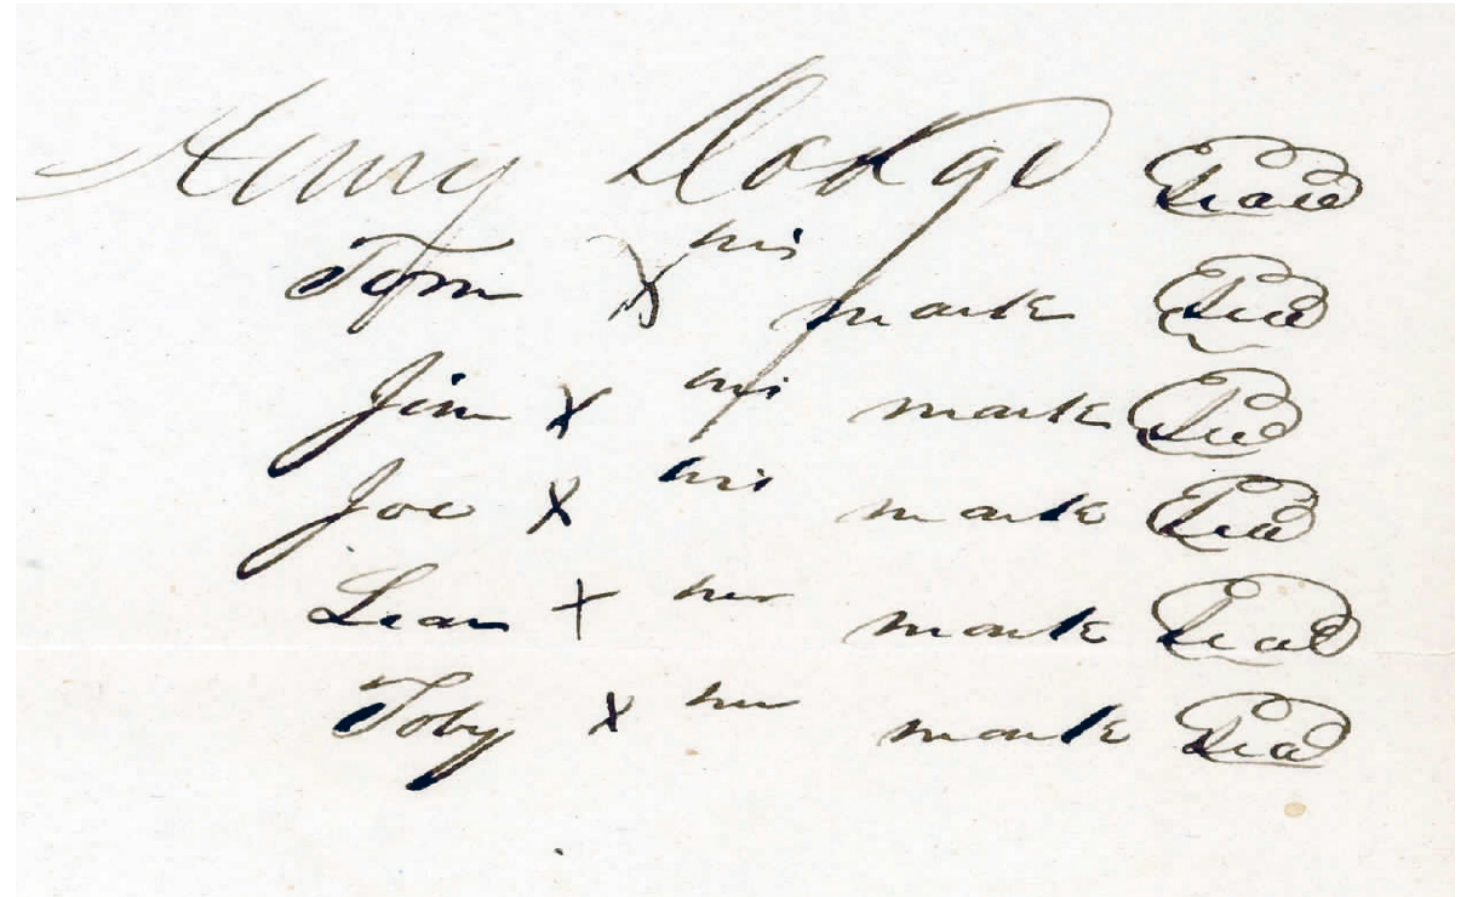 Henry Dodge Seal
Tom X his mark Seal
Jim X his mark Seal
Joe X his mark Seal
Lear X her mark Seal
Toby X her mark Seal